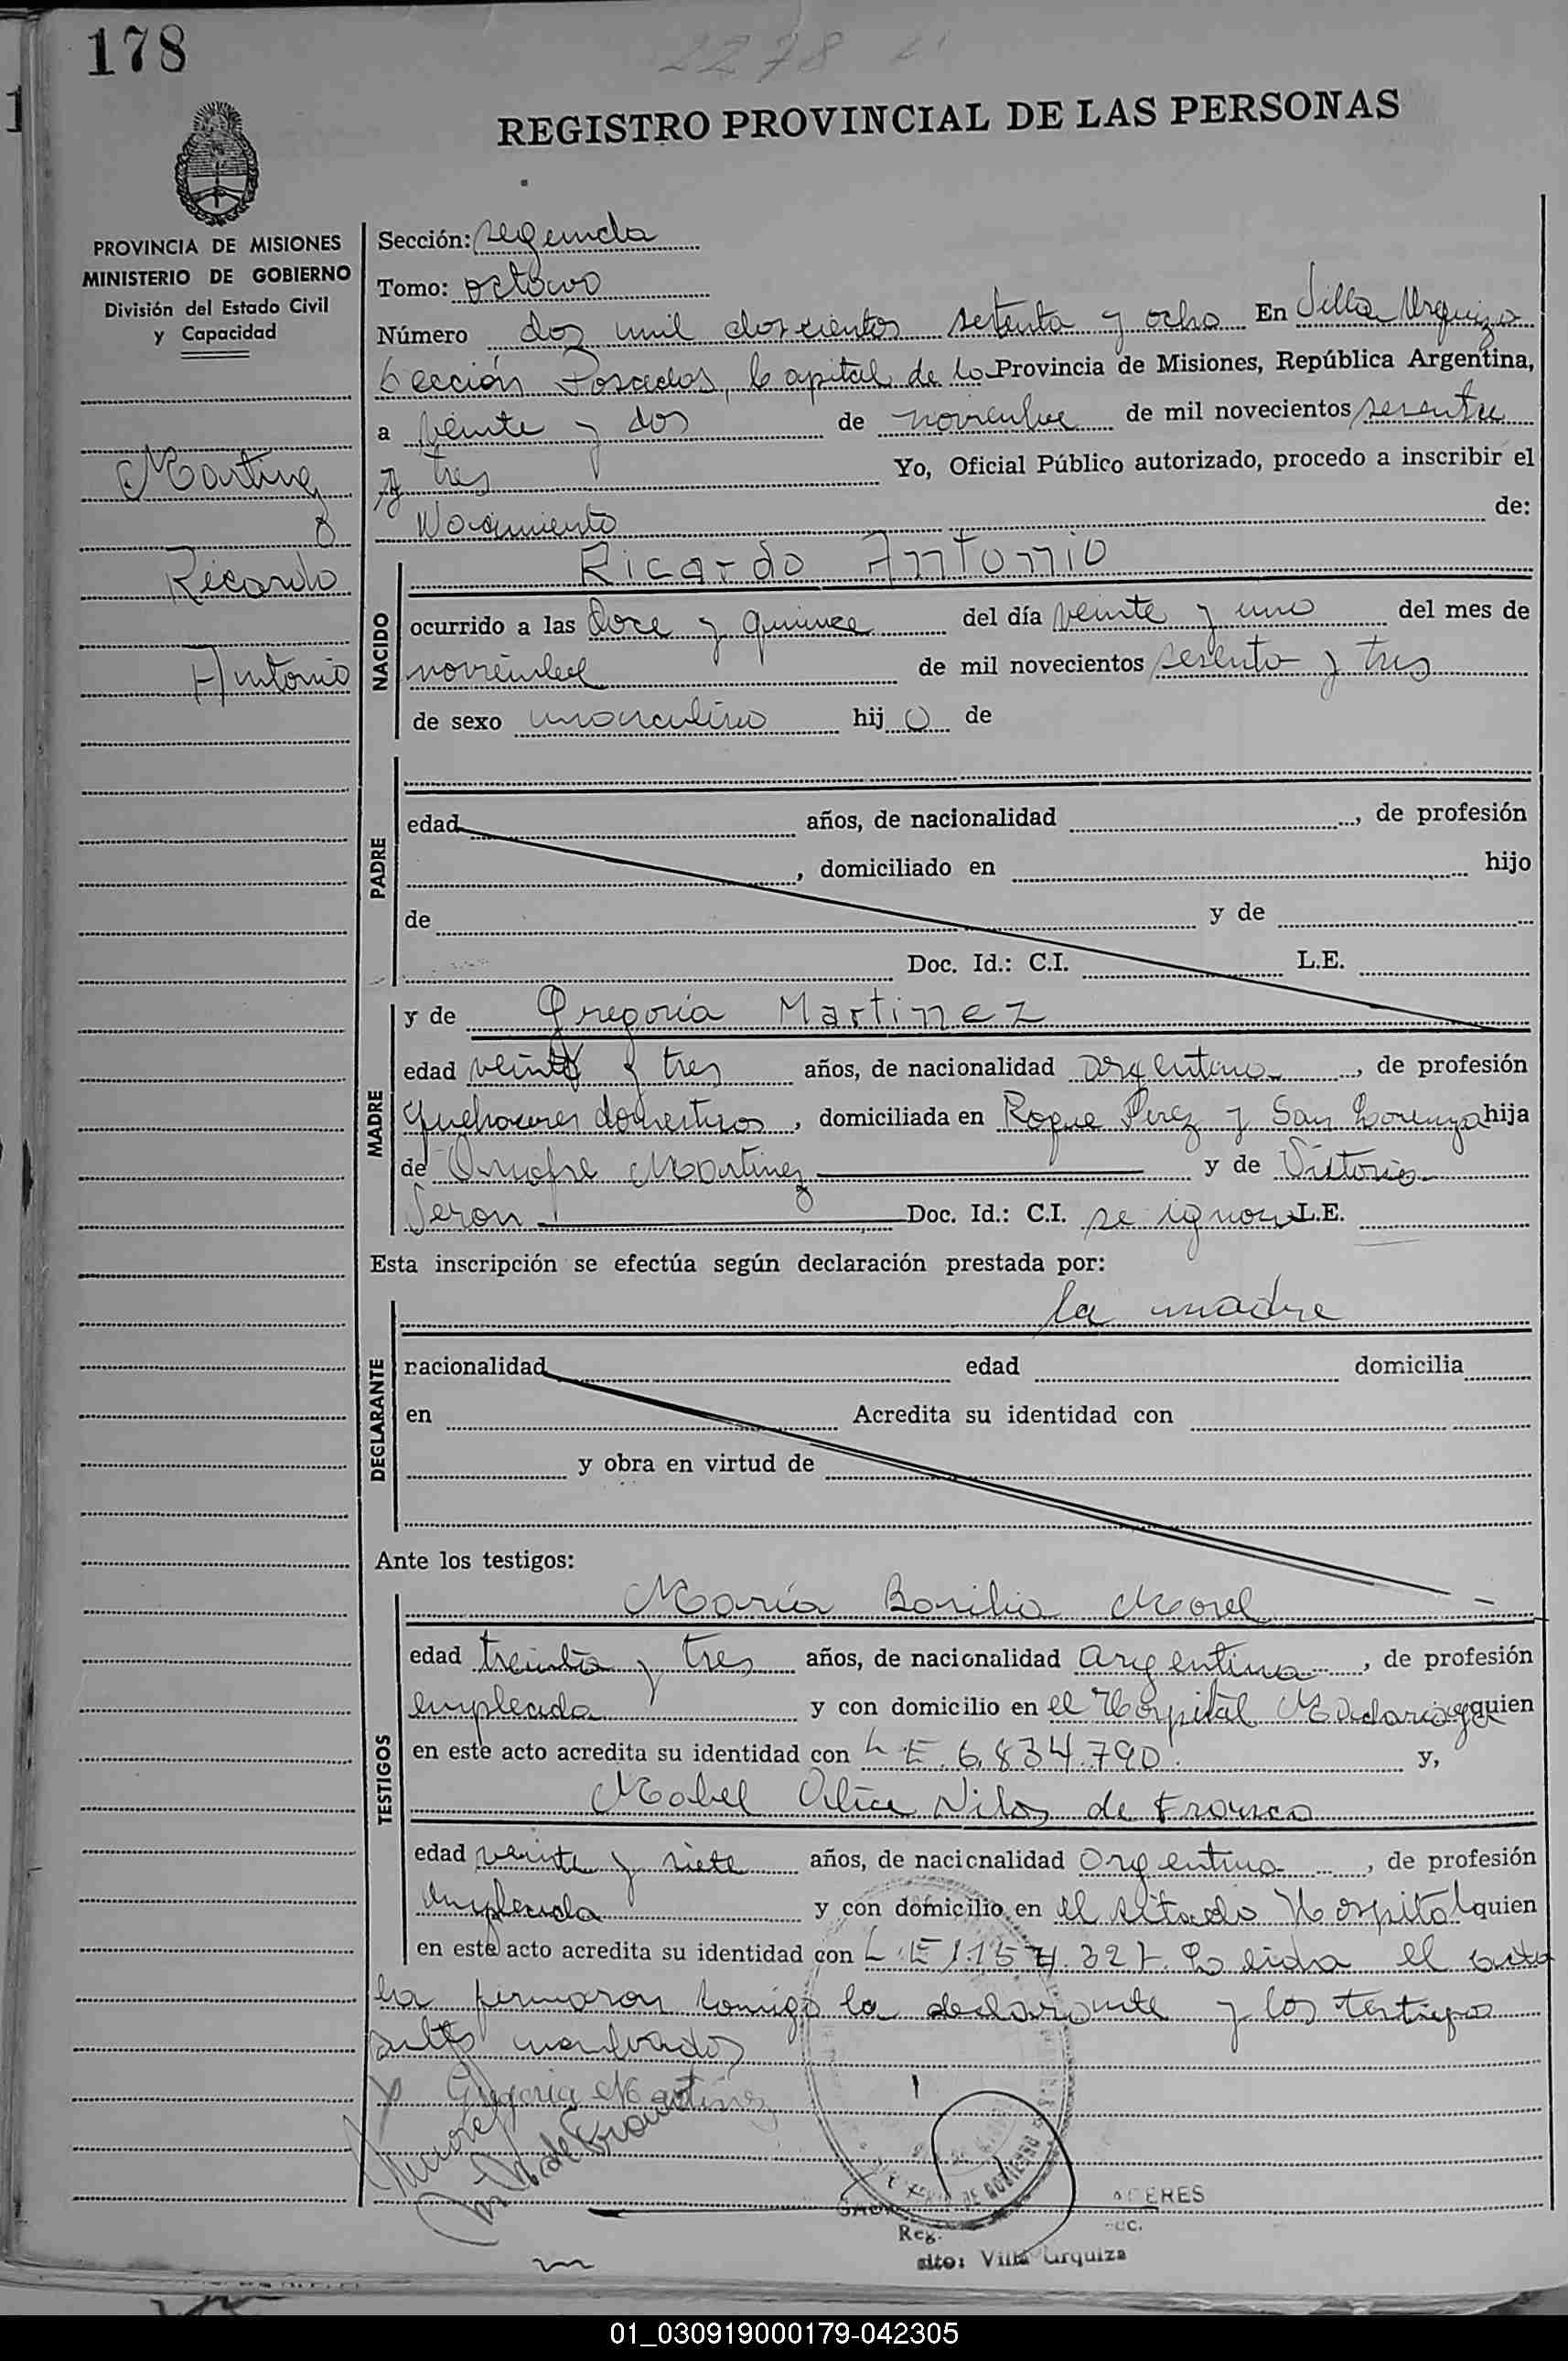 178
2278
REGISTRO PROVINCIAL DE LAS PERSONAS
PROVINCIA DE MISIONES
MINISTERIO DE GOBIERNO
División del Estado Civil
y Capacidad
Martinez
Ricardo
Antonio
Sección: segunda
Tomo: octavo
Número dos mil doscientos setenta y ocho En Villa Urquiza
Sección Posadas, Capital de la Provincia de Misiones, República Argentina,
a veinte y dos de noviembre de mil novecientos sesenta
y tres Yo, Oficial Público autorizado, procedo a inscribir el
Nacimiento de:
NACIDO
Ricardo Antonio
ocurrido a las doce y quince del día veinte y uno del mes de
noviembre de mil novecientos sesenta y tres
de sexo masculino hijo de
PADRE
edad años, de nacionalidad , de profesión
, domiciliado en hijo
de y de
Doc. Id.: C.I. L.E.
MADRE
y de Gregoria Martinez
edad veinte y tres años, de nacionalidad argentina , de profesión
Quehaceres domesticos , domiciliada en Roque Perez y San Lorenzo hija
de Onofre Martinez y de Victoria
Seron Doc. Id.: C.I. se ignora L.E.
Esta inscripción se efectúa según declaración prestada por:
DECLARANTE
la madre
nacionalidad edad domicilia
en Acredita su identidad con
y obra en virtud de
Ante los testigos:
TESTIGOS
María Basilia Morel
edad treinta y tres años, de nacionalidad argentina , de profesión
empleada y con domicilio en el Hospital Madariaga quien
en este acto acredita su identidad con L.E. 6.834.790. y,
Mabel Alice de Franco
edad veinte y siete años, de nacionalidad argentina , de profesión
empleada y con domicilio en el citado Hospital quien
en este acto acredita su identidad con L.E. Leida el acta
la firmaron conmigo la declarante y los testigos
antes nombrados
Gregoria Martinez
Morel
de Franco
Reg.
sito: Villa Urquiza
01_030919000179-042305